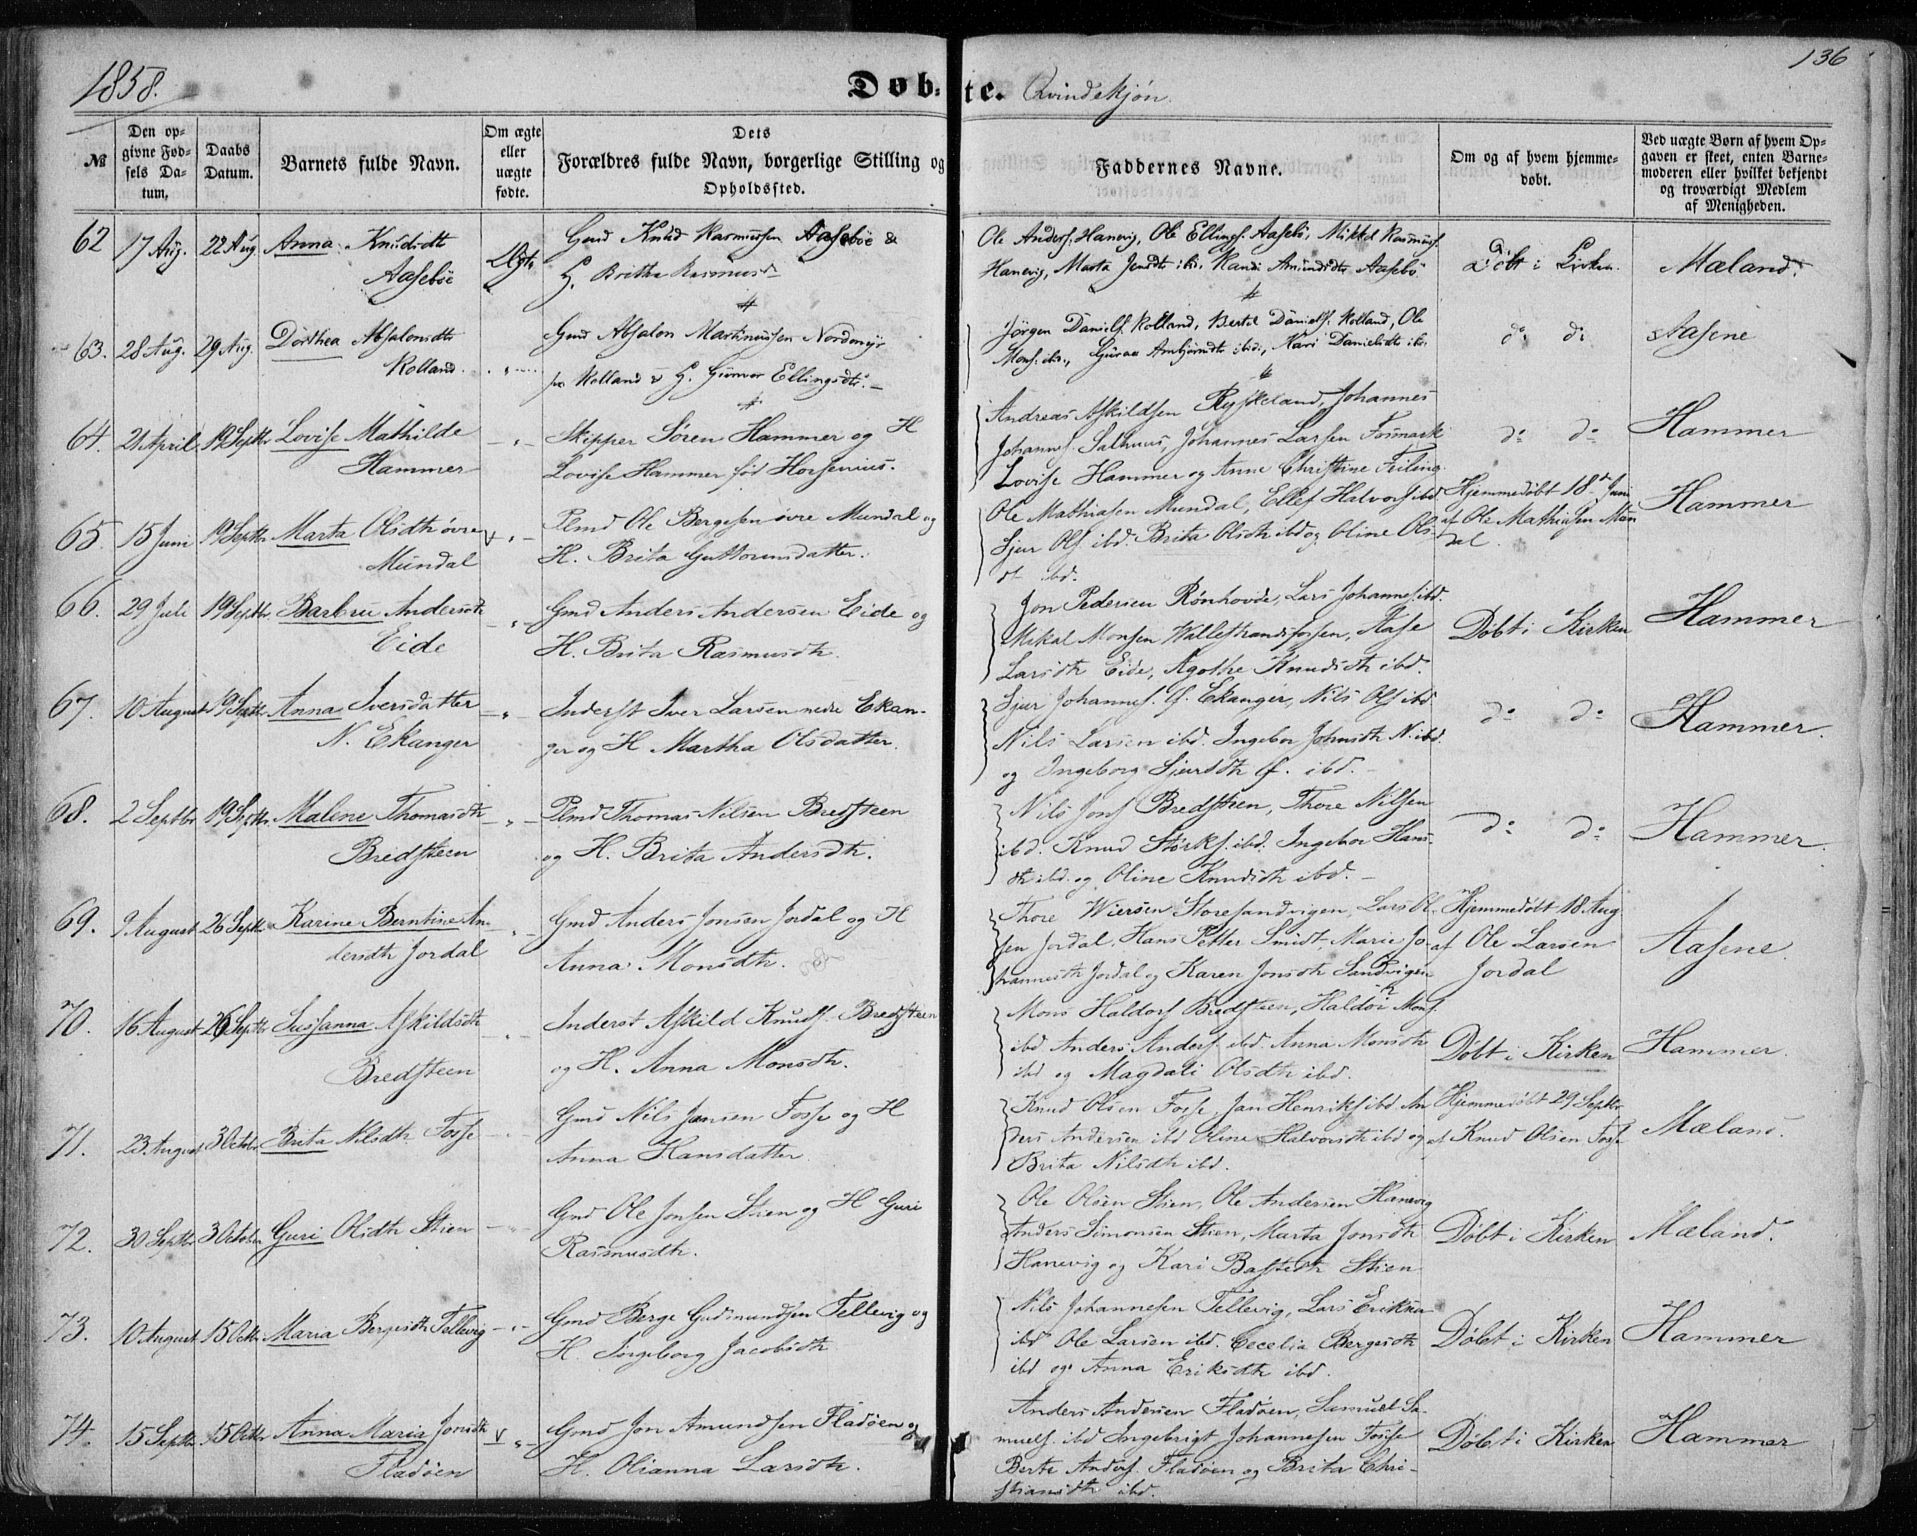 136
1858.
Døb- te. Qvindekjøn.
№
Den op-
givne Fød-
sels Da-
tum.
Daabs
Datum.
Barnets fulde Navn.
Om ægte
eller
uægte
fødte.
Dets
Forældres fulde Navn, borgerlige Stilling og
Opholdssted.
Faddernes Navne.
Om og af hvem hjemme-
døbt.
Ved uægte Børn af hvem Op-
gaven er skeet, enten Barne-
moderen eller hvilket bekjendt
og troværdigt Medlem
af Menigheden.
62 17 Aug. 22 Aug. Anna Knudsdt
Aasebøe
Ægte
Gmd Knud Rasmussen Aasebøe &
H. Britha Rasmusd
Ole Anders. Hanevig, Ole Ellings. Aasebø, Mikkel Rasmuss.
Hanevig, Marta Jensdtr ibd. Randi Amundsdtr Aasebø
Døbt i Kirken.
Mæland.
63. 28 Aug. 29 Aug. Dorthea Absalonsdtr
Rolland.
Gmd Absalon Martinussen Nordmyr
pr Rolland & H. Gunvor Ellingsdtr.
Jørgen Daniels. Rolland, Bertel Daniels. Rolland, Ole
Mons. ibd., Guroe Arnbjørnsdtr ibd., Kari Danielsdtr ibd.
do do
Aasene
64. 21 April 19 Septbr Lovise Mathilde
Hammer
Skipper Søren Hammer og H
Lovise Hammer fød Horsenius.
Andreas Askildsen Ryskeland, Johannes
Johanns. Salhuus, Johannes Larsen Fosmark
Lovise Hammer og Anne Christine Feiling
do do
Hammer
65. 15 Juni 19 Septbr Marta Olsdtr øvre
Mundal
Plmd Ole Bergesen øvre Mundal og
H. Brita Guttormsdatter.
Ole Mathiasen Mundal, Ellef Halvors. ibd.
Sjur Ols. ibd. Brita Olsdtr ibd og Oline Ols-
dt ibd.
Hjemmedøbt 18d Juni
af Ole Mathiasen Mun
dal.
Hammer
66. 29 Juli 19 Septbr Barbru Andersdtr
Eide
Gmd Anders Andersen Eide og
H. Brita Rasmusdtr.
Jon Pedersen Rønhovde, Lars Johannes. ibd.
Mikal Monsen Wallestrandsfossen, Aase
Larsdtr Eide, Agothe Knudsdtr ibd.
Døbt i Kirken
Hammer
67. 10 August 19 Septbr Anna Iversdatter
N. Ekanger
Inderst Iver Larsen nedre Ekan-
ger og H Martha Olsdatter.
Sjur Johannes. Ø. Ekanger, Nils Ols ibd
Nils Larsen ibd. Ingebor Johnsdtr N. ibd.
og Ingeborg Sjursdtr Ø. ibd.
do do
Hammer.
68. 2 Septbr 19 Septbr Malene Thomasdtr
Bredsteen
Plmd Thomas Nilsen Bredsteen
og H. Brita Andersdtr.
Nils Jons. Bredsteen, Thore Nilsen
ibd. Knud Størks. ibd. Ingebor Hans-
dtr ibd. og Oline Knudsdtr ibd.
do do
Hammer.
69. 9 August 26 Septbr Karine Berntine An-
dersdtr Jordal
Gmd Anders Jonsen Jordal og H
Anna Monsdtr.
Thore Wiersen Storesandvigen, Lars Ol-
sen Jordal, Hans Petter Smidt, Marie Jo-
hannesdtr Jordal og Karen Jonsdtr Sandvigen
Hjemmedøbt 18 Aug
af Ole Larsen
Jordal
Aasene.
70. 16 August 26 Septbr Susanna Askildsdtr
Bredsteen
Inderst Askild Knuds. Bredsteen
og H. Anna Monsdtr.
Mons Haldors. Bredsteen, Haldor Mons.
ibd Anders Anders. ibd. Anna Monsdtr
ibd og Magdali Olsdtr ibd.
Døbt i Kirken
Hammer.
71. 23 August 3 Octobr Brita Nilsdtr Fosse
Gmd Nils Jansen Fosse og H
Anna Hansdatter.
Knud Olsen Fosse, Jan Henriks. ibd An
ders Andersen ibd Oline Halvorsdtr ibd og
Brita Nilsdtr ibd.
Hjemmedøbt 29 Septbr
af Knud Olsen Fosse
Mæland.
72. 30 Septbr 3 October Guri Olsdtr Stien
Gmd Ole Jonsen Stien og H Guri
Rasmusdtr.
Ole Olsen Stien, Ole Andersen Hanevig
Anders Simonsen Stien, Marta Jonsdtr
Hanevig og Kari Bastedtr Stien
Døbt i Kirken
Mæland.
73. 10 August 15 Octbr Maria Bergesdtr Tellevig
Gmd Berge Gudmundsen Tellevig og
H. Ingeborg Jacobsdtr
Nils Johannesen Tellevig, Lars Eriksen
ibd Ole Larsen ibd. Cecelia Bergesdtr
ibd og Anna Eriksdtr ibd.
Døbt i Kirken
Hammer
74. 15 Septbr 15 Octbr Anna Maria Jonsdtr
Fladøen
Gmd Jon Amundsen Fladøen og
H. Olianna Larsdtr.
Anders Andersen Fladøen, Samuel Sa-
muels. ibd Ingebrigt Johannesen Fosse
Berte Anders. Fladøen og Brita Chri-
stiansdtr ibd.
Døbt i Kirken
Hammer